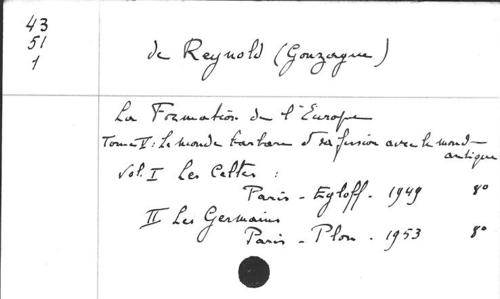 43
51
1
de Reynold (Gonzague)
La Formation de l'Europe
Tome V : Le monde barbare et sa fusion avec le monde
antique
Vol. I Les Celtes :
Paris - Egloff - 1949 8°
II Les Germains
Paris - Plon - 1953 8°